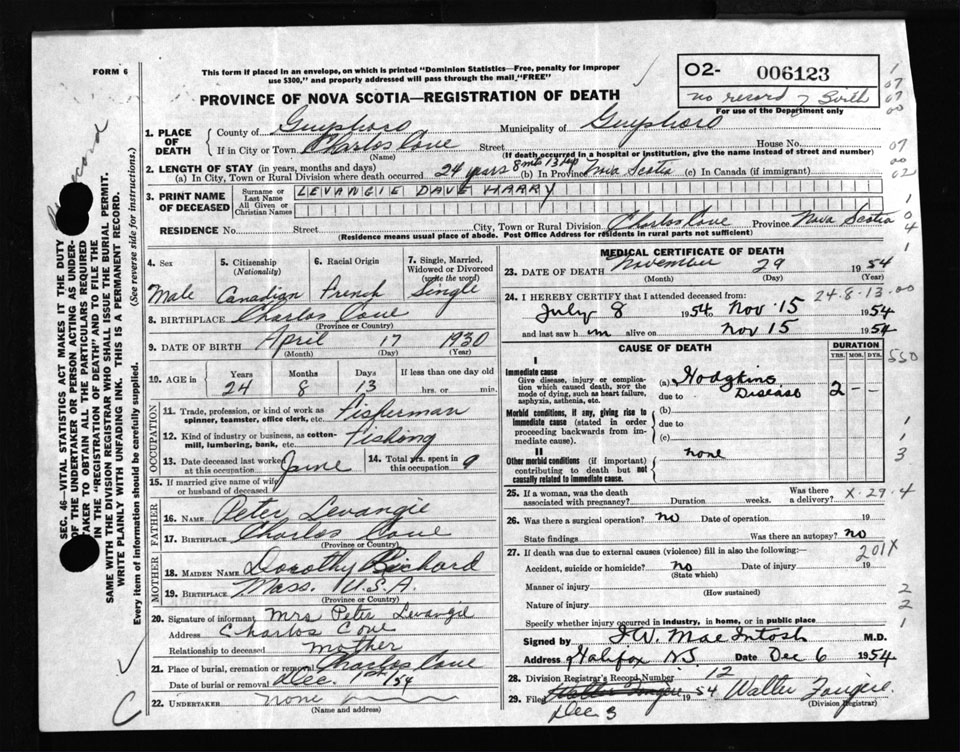 FORM 6
This form if placed in an envelope, on which is printed "Dominion Statistics—Free, penalty for improper
use $300," and properly addressed will pass through the mail "FREE"
O2- 006123
no record of birth
For use of the Department only
PROVINCE OF NOVA SCOTIA—REGISTRATION OF DEATH
1. PLACE OF DEATH
County of Guysboro Municipality of Guysboro
If in City or Town Charlos Cove Street House No.
(Name) (If death occurred in a hospital or institution, give the name instead of street and number)
2. LENGTH OF STAY (in years, months and days)
(a) In City, Town or Rural Division where death occurred 24 years 8 mts 13 (b) In Province Nova Scotia (c) In Canada (if immigrant)
3. PRINT NAME OF DECEASED
Surname or Last Name LEVANGIE DAVE HARRY
All Given or Christian Names
RESIDENCE No. Street City, Town or Rural Division Charlos Cove Province Nova Scotia
(Residence means usual place of abode. Post Office Address for residents in rural parts not sufficient)
4. Sex 5. Citizenship (Nationality) 6. Racial Origin 7. Single, Married, Widowed or Divorced (write the word)
Male Canadian French Single
8. BIRTHPLACE Charlos Cove
(Province or Country)
9. DATE OF BIRTH April 17 1930
(Month) (Day) (Year)
10. AGE in Years Months Days If less than one day old
24 8 13 hrs. or min.
OCCUPATION
11. Trade, profession, or kind of work as spinner, teamster, office clerk, etc. Fisherman
12. Kind of industry or business, as cotton-mill, lumbering, bank, etc. Fishing
13. Date deceased last worked at this occupation June 14. Total yrs. spent in this occupation 9
15. If married give name of wife or husband of deceased
FATHER
16. NAME Peter Levangie
17. BIRTHPLACE Charlos Cove
(Province or Country)
MOTHER
18. MAIDEN NAME Dorothy Richard
19. BIRTHPLACE Mass. U.S.A.
(Province or Country)
20. Signature of informant Mrs Peter Levangie
Address Charlos Cove
Relationship to deceased mother
21. Place of burial, cremation or removal Charlos Cove
Date of burial or removal Dec. 1st/54
22. UNDERTAKER none
(Name and address)
MEDICAL CERTIFICATE OF DEATH
23. DATE OF DEATH November 29 1954
(Month) (Day) (Year)
24. I HEREBY CERTIFY that I attended deceased from: 24-8-13.00
July 8 1954 to Nov 15 1954
and last saw h im alive on Nov 15 1954
CAUSE OF DEATH DURATION
YRS. MOS. DYS.
I
Immediate cause
Give disease, injury or complication which caused death, not the mode of dying, such as heart failure, asphyxia, asthenia, etc.
(a) Hodgkins Disease 2 – –
due to
Morbid conditions, if any, giving rise to immediate cause (stated in order proceeding backwards from immediate cause).
(b)
due to
(c)
II
Other morbid conditions (if important) contributing to death but not causally related to immediate cause.
none
550
25. If a woman, was the death associated with pregnancy? Duration weeks. Was there a delivery?
X-29-4
26. Was there a surgical operation? no Date of operation 19
State findings Was there an autopsy? no
27. If death was due to external causes (violence) fill in also the following:—
201X
Accident, suicide or homicide? no Date of injury 19
(State which)
Manner of injury
(How sustained)
Nature of injury
Specify whether injury occurred in industry, in home, or in public place
Signed by H.W. MacIntosh M.D.
Address Halifax NS Date Dec 6 1954
28. Division Registrar's Record Number 12
29. Filed Walter Fougere 1954 Walter Fougere
Dec 3 (Division Registrar)
SEC. 46—VITAL STATISTICS ACT MAKES IT THE DUTY
OF THE UNDERTAKER OR PERSON ACTING AS UNDERTAKER TO OBTAIN ALL THE PARTICULARS REQUIRED
IN THE "REGISTRATION OF DEATH" AND TO FILE THE
SAME WITH THE DIVISION REGISTRAR WHO SHALL ISSUE THE BURIAL PERMIT.
WRITE PLAINLY WITH UNFADING INK. THIS IS A PERMANENT RECORD.
Every item of information should be carefully supplied. (See reverse side for instructions.)